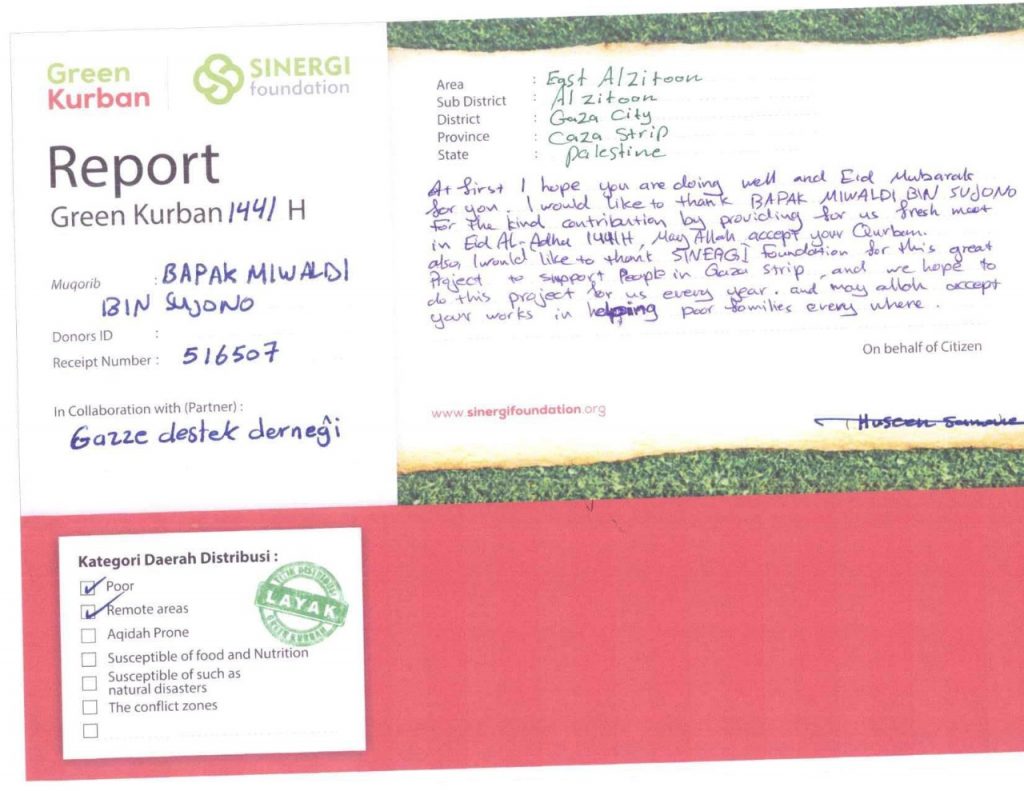 Green
Kurban
SINERGI
foundation
Report
Green Kurban 1441 H
Muqorib : BAPAK MIWALDI
BIN SUJONO
Donors ID :
Receipt Number : 516507
In Collaboration with (Partner) :
Gazze destek derneği
Area : East Alzitoon
Sub District : Alzitoon
District : Gaza City
Province : Gaza Strip
State : Palestine
At first I hope you are doing well and Eid Mubarak
for you. I would like to thank BAPAK MIWALDI BIN SUJONO
for the kind contribution by providing for us fresh meat
in Eid Al-Adha 1441H, May Allah accept your Qurban.
also, I would like to thank SINERGI foundation for this great
Project to support People in Gaza strip, and we hope to
do this project for us every year. and may allah accept
your works in helping poor families every where.
On behalf of Citizen
www.sinergifoundation.org
Huseen
Kategori Daerah Distribusi :
Poor
Remote areas
Aqidah Prone
Susceptible of food and Nutrition
Susceptible of such as
natural disasters
The conflict zones
LAYAK
GREEN KURBAN